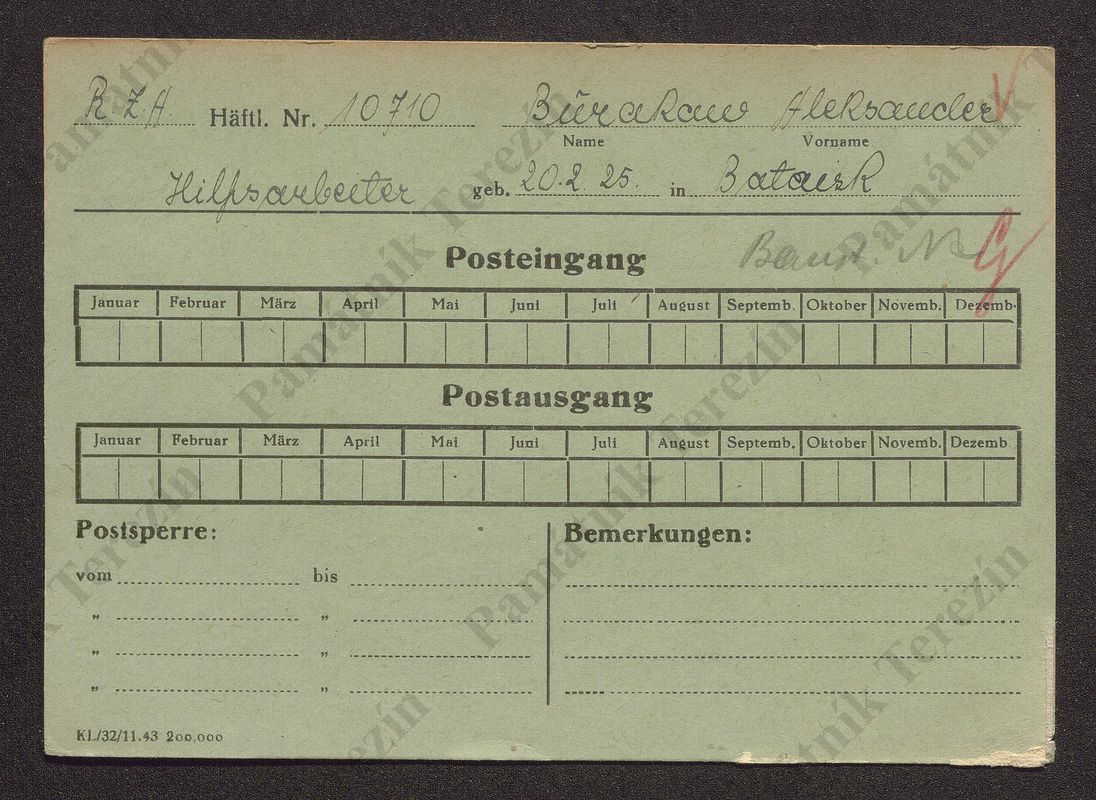 R.Z.A. Häftl. Nr. 10710 Burakow Aleksander
Name Vorname
Hilfsarbeiter geb. 20.2.25. in Bataisk
Posteingang
Januar Februar März April Mai Juni Juli August Septemb. Oktober Novemb. Dezemb.
Postausgang
Januar Februar März April Mai Juni Juli August Septemb. Oktober Novemb. Dezemb.
Postsperre: Bemerkungen:
vom bis
„ „
„ „
„ „
KL/32/11.43 200.000
Památník Terezín